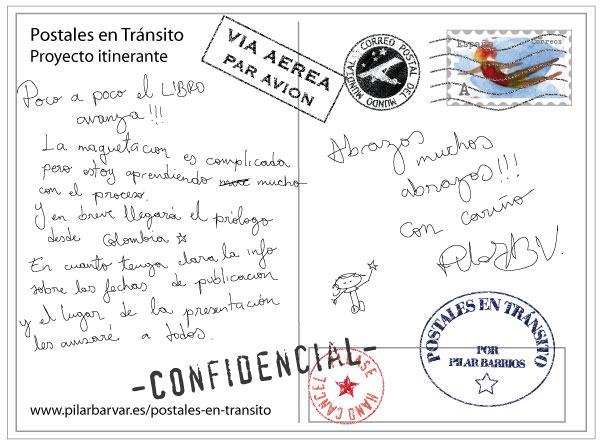 Postales en Tránsito
Proyecto itinerante
VIA AEREA
PAR AVION
CORREO POSTAL
MUNDIAL DEL MUNDO
España
Correos
A
Poco a poco el LIBRO
avanza!!!
La maquetación es complicada
pero estoy aprendiendo mucho
con el proceso.
Y en breve llegará el prólogo
desde Colombia
En cuanto tenga clara la info
sobre las fechas de publicación
y el lugar de la presentación
les avisaré a todos.
Abrazos
muchos
abrazos!!!
con cariño
PilarBV.
-CONFIDENCIAL-
PLEASE
HAND CANCEL
POSTALES EN TRÁNSITO
POR
PILAR BARRIOS
www.pilarbarvar.es/postales-en-transito